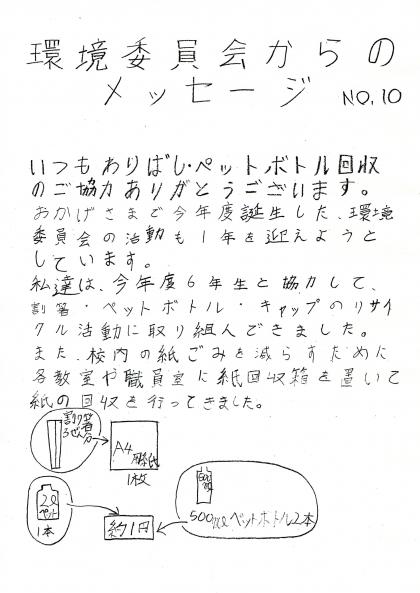 環境委員会からの
メッセージ NO.10
いつもわりばし・ペットボトル回収
のご協力ありがとうございます。
おかげさまで今年度誕生した、環境
委員会の活動も1年を迎えようと
しています。
私達は、今年度6年生と協力して、
割箸・ペットボトル・キャップのリサイ
クル活動に取り組んできました。
また、校内の紙ごみを減らすために
各教室や職員室に紙回収箱を置いて
紙の回収を行ってきました。
割り箸
3ぜん分
A4
用紙
1枚
2ℓ
ペット
1本
約1円
500
500mℓペットボトル2本